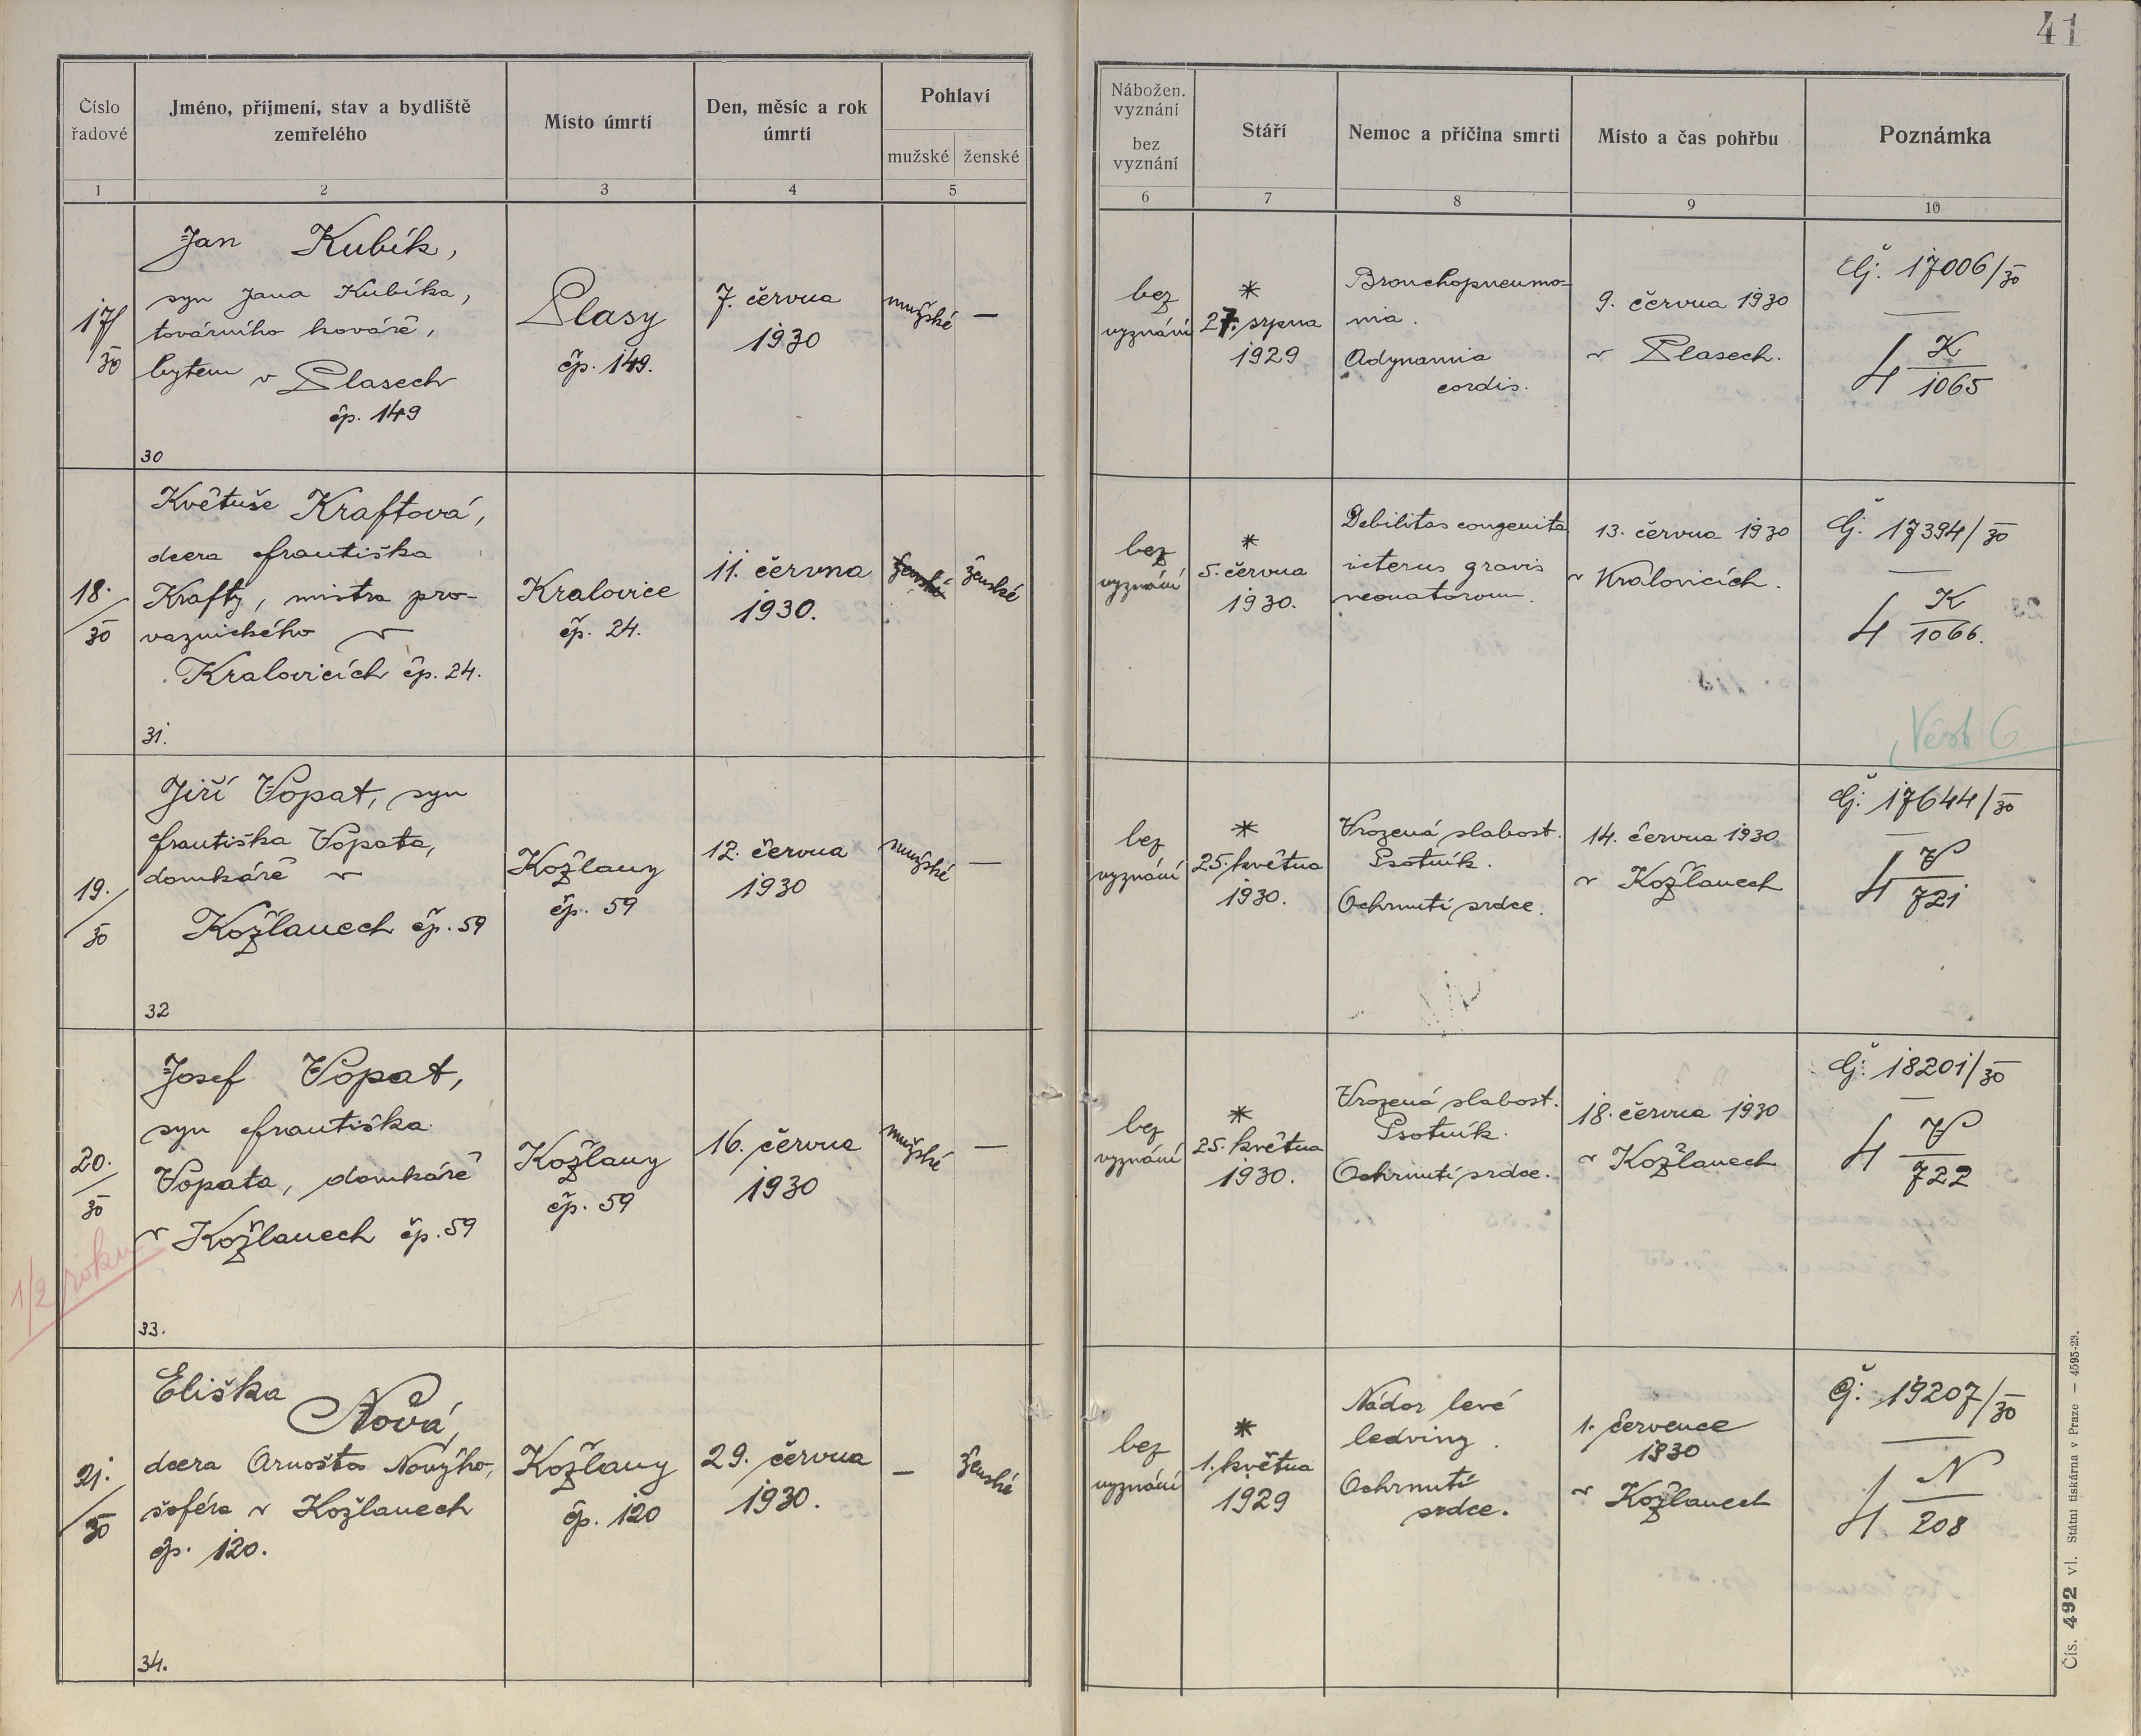 41
Číslo
řadové
Jméno, příjmení, stav a bydliště
zemřelého
Místo úmrtí
Den, měsíc a rok
úmrtí
Pohlaví
mužské
ženské
Nábožen.
vyznání
bez
vyznání
Stáří
Nemoc a příčina smrti
Místo a čas pohřbu
Poznámka
1
2
3
4
5
6
7
8
9
10
17/
30
Jan Kubík,
syn Jana Kubíka,
továrního kováře,
bytem v Plasech
čp. 149
30
Plasy
čp. 149.
7. června
1930
mužské
—
bez
vyznání
*
27. srpna
1929
Bronchopneumo-
nia.
Adynamia
cordis.
9. června 1930
v Plasech.
Čj. 17006/30
4 K
1065
18.
30
Květuše Kraftová,
dcera Františka
Krafty, mistra pro-
vaznického v
Kralovicích čp. 24.
31.
Kralovice
čp. 24.
11. června
1930.
ženské
ženské
bez
vyznání
*
5. června
1930.
Debilitas congenita
icterus gravis
neonatorum.
13. června 1930
v Kralovicích.
Čj. 17394/30
4 K
1066.
19.
30
Jiří Vopat, syn
Františka Vopata,
domkáře v
Kožlanech čp. 59
32
Kožlany
čp. 59
12. června
1930
mužské
—
bez
vyznání
*
25. května
1930.
Vrozená slabost.
Psotník.
Ochrnutí srdce.
14. června 1930
v Kožlanech
Čj: 17644/30
4 V
721
20.
30
Josef Vopat,
syn Františka
Vopata, domkáře
v Kožlanech čp. 59
1/2 roku
33.
Kožlany
čp. 59
16. června
1930
mužské
—
bez
vyznání
*
25. května
1930.
Vrozená slabost.
Psotník.
Ochrnutí srdce.
18. června 1930
v Kožlanech
Čj: 18201/30
4 V
722
21.
30
Eliška
Nová,
dcera Arnošta Nového,
šoféra v Kožlanech
čp. 120.
34.
Kožlany
čp. 120
29. června
1930.
—
ženské
bez
vyznání
*
1. května
1929
Nádor levé
ledviny.
Ochrnutí
srdce.
1. července
1930
v Kožlanech
Čj: 19207/30
4 N
208
Čís. 492 vl. Státní tiskárna v Praze — 4595-23.